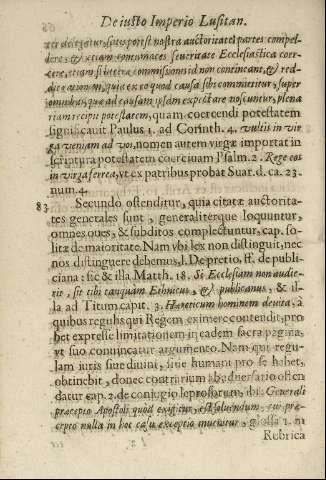 De iusto Imperio Lusitan.
ter delegatur, siue potest nostra auctoritate partes compel-
lere, & etiam contumaces seueritate Ecclesiastica coer-
cere, etiam si litteræ commissionis id non contineant, &
ex eo quod causa sibi committitur, super
omnibus, quæ ad causam ipsam expectare noscuntur, plena
riam recipit potestatem, quam coercendi potestatem
significauit Paulus 1. ad Corinth. 4. vultis in vir
ga veniam ad vos, nomen autem virgæ importat in
scriptura potestatem coerciuam Psalm. 2. Reges eos
in virga ferrea, vt ex patribus probat Suar. d. ca. 23.
num. 4.
83 Secundo ostenditur, quia citatæ auctorita-
tes generales sunt, generaliterque loquuntur,
omnes oues, & subditos complectuntur, cap. so-
litæ de maioritate. Nam vbi lex non distinguit, nec
nos distinguere debemus, l. De pretio, ff. de publi-
ciana: sic & illa Matth. 18. Si Ecclesiam non audie-
rit, sit tibi tanquam Ethnicus, & publicanus, & il-
la ad Titum capit. 3. Hæreticum hominem deuita, à
quibus regulis qui Regem eximere contendit, pro
bet expresse limitationem in eadem sacra pagina,
vt suo conuincat argumento. Nam qui regu-
lam iuris siue diuini, siue humani pro se habet,
obtinebit, donec contrarium ab aduersario osten
datur cap. 2. de coniugio leprosorum, ibi: Generali
præcepto Apostoli quod exigitur, est soluendum, cui præ-
cepto nulla in hoc casu exceptio inuenitur. glossa 1. in
Rebrica